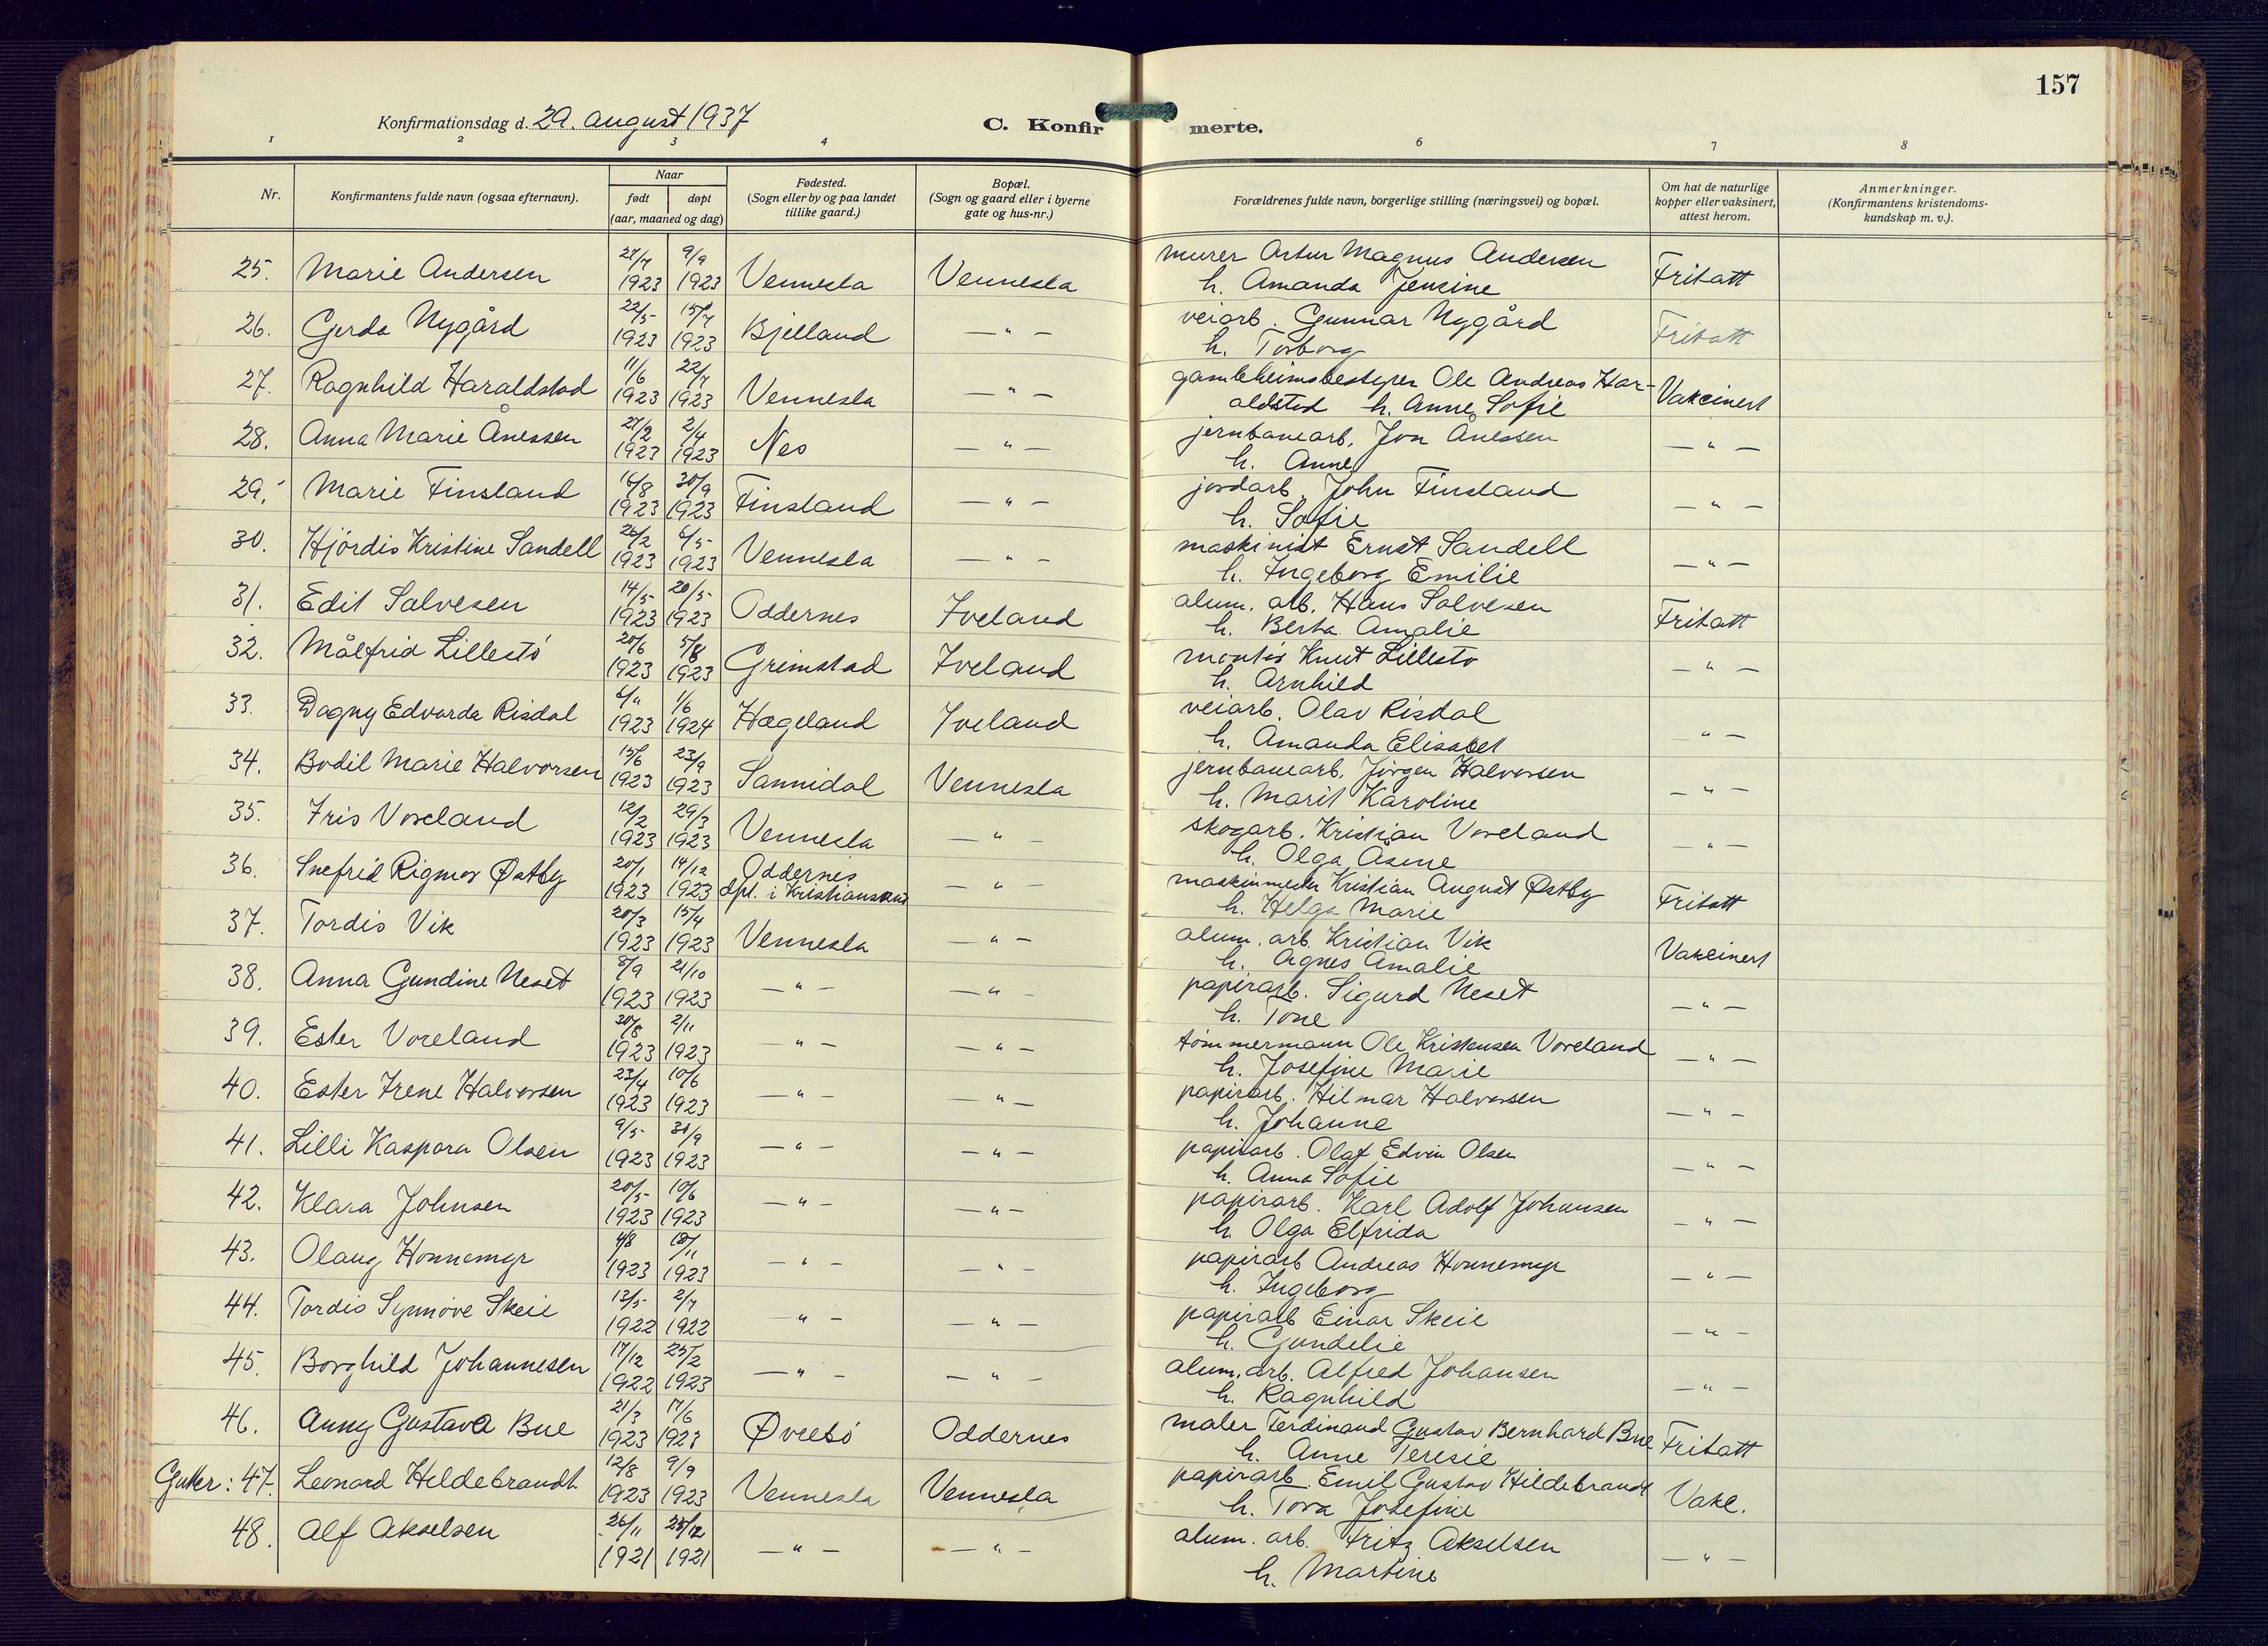 157
Konfirmationsdag d. 29. august 1937
C. Konfirmerte.
1 2 3 4 6 7 8
Nr.
Konfirmantens fulde navn (ogsaa efternavn).
Naar
født døpt
(aar, maaned og dag)
Fødested.
(Sogn eller by og paa landet
tillike gaard.)
Bopæl.
(Sogn og gaard eller i byerne
gate og hus-nr.)
Forældrenes fulde navn, borgerlige stilling (næringsvei) og bopæl.
Om hat de naturlige
kopper eller vaksinert,
attest herom.
Anmerkninger.
(Konfirmantens kristendoms-
kundskap m. v.).
25. Marie Andersen 27/7 1923 9/9 1923 Vennesla Vennesla murer Artur Magnus Andersen
h. Amanda Jensine Fritatt
26. Gerda Nygård 22/5 1923 15/7 1923 Bjelland — " — veiarb. Gunnar Nygård
h. Torborg Fritatt
27. Ragnhild Haraldstad 11/6 1923 22/7 1923 Vennesla — " — gamleheimsbestyrer Ole Andreas Har-
aldstad h. Anne Sofie Vakcinert
28. Anna Marie Ånessen 27/2 1923 2/4 1923 Nes — " — jernbanearb. Jon Ånessen
h. Anne — " —
29. Marie Finsland 16/8 1923 30/9 1923 Finsland — " — jordarb. John Finsland
h. Sofie — " —
30. Hjördis Kristine Sandell 26/2 1923 6/5 1923 Vennesla — " — maskinist Ernst Sandell
h. Ingeborg Emilie — " —
31. Edit Salvesen 14/5 1923 20/5 1923 Oddernes Iveland alum. arb. Hans Salvesen
h. Berta Amalie Fritatt
32. Målfrid Lillestö 20/6 1923 5/8 1923 Grimstad Iveland montör Knut Lillestö
h. Arnhild — " —
33. Dagny Edvarda Risdal 1923 1/6 1924 Hægeland Iveland veiarb. Olav Risdal
h. Amanda Elisabet — " —
34. Bodil Marie Halvorsen 15/6 1923 23/9 1923 Sannidal Vennesla jernbanearb. Jörgen Halvorsen
h. Marit Karoline — " —
35. Iris Voreland 12/2 1923 29/3 1923 Vennesla — " — skogarb. Kristian Voreland
h. Olga Åsine — " —
36. Snefrid Rigmor Østby 20/1 1923 14/12 1923 Oddernes
dpt. i Kristiansand — " — maskinmester Kristian August Østby
h. Helga Marie Fritatt
37. Tordis Vik 20/3 1923 15/4 1923 Vennesla — " — alum. arb. Kristian Vik
h. Agnes Amalie Vakcinert
38. Anna Gundine Neset 8/9 1923 21/10 1923 — " — — " — papirarb. Sigurd Neset
h. Tone — " —
39. Ester Voreland 30/8 1923 2/11 1923 — " — — " — tömmermann Ole Kristensen Voreland
h. Josefine Marie — " —
40. Ester Irene Halvorsen 23/4 1923 10/6 1923 — " — — " — papirarb. Hilmar Halvorsen
h. Johanne — " —
41. Lilli Kaspara Olsen 9/5 1923 1923 — " — — " — papirarb. Olaf Edvin Olsen
h. Anna Sofie — " —
42. Klara Johnsen 20/5 1923 10/6 1923 — " — — " — papirarb. Karl Adolf Johansen
h. Olga Elfrida — " —
43. Olaug Honnemyr 4/8 1923 18/11 1923 — " — — " — papirarb Andreas Honnemyr
h. Ingeborg — " —
44. Tordis Synnöve Skeie 13/5 1922 2/7 1922 — " — — " — papirarb Einar Skeie
h. Gundelie — " —
45. Borghild Johannesen 17/12 1922 25/2 1923 — " — — " — alum. arb. Alfred Johansen
h. Ragnhild — " —
46. Anny Gustava Bue 21/3 1923 17/6 1923 Øvrebö Oddernes maler Ferdinand Gustav Bernhard Bue
h. Anne Teresie Fritatt
Gutter: 47. Leonard Hildebrandt 12/8 1923 9/9 1923 Vennesla Vennesla papirarb. Emil Gustav Hildebrandt
h. Tora Josefine Vakc.
48. Alf Akselsen 26/11 1921 1921 — " — — " — alum. arb. Fritz Akselsen
h. Martine — " —